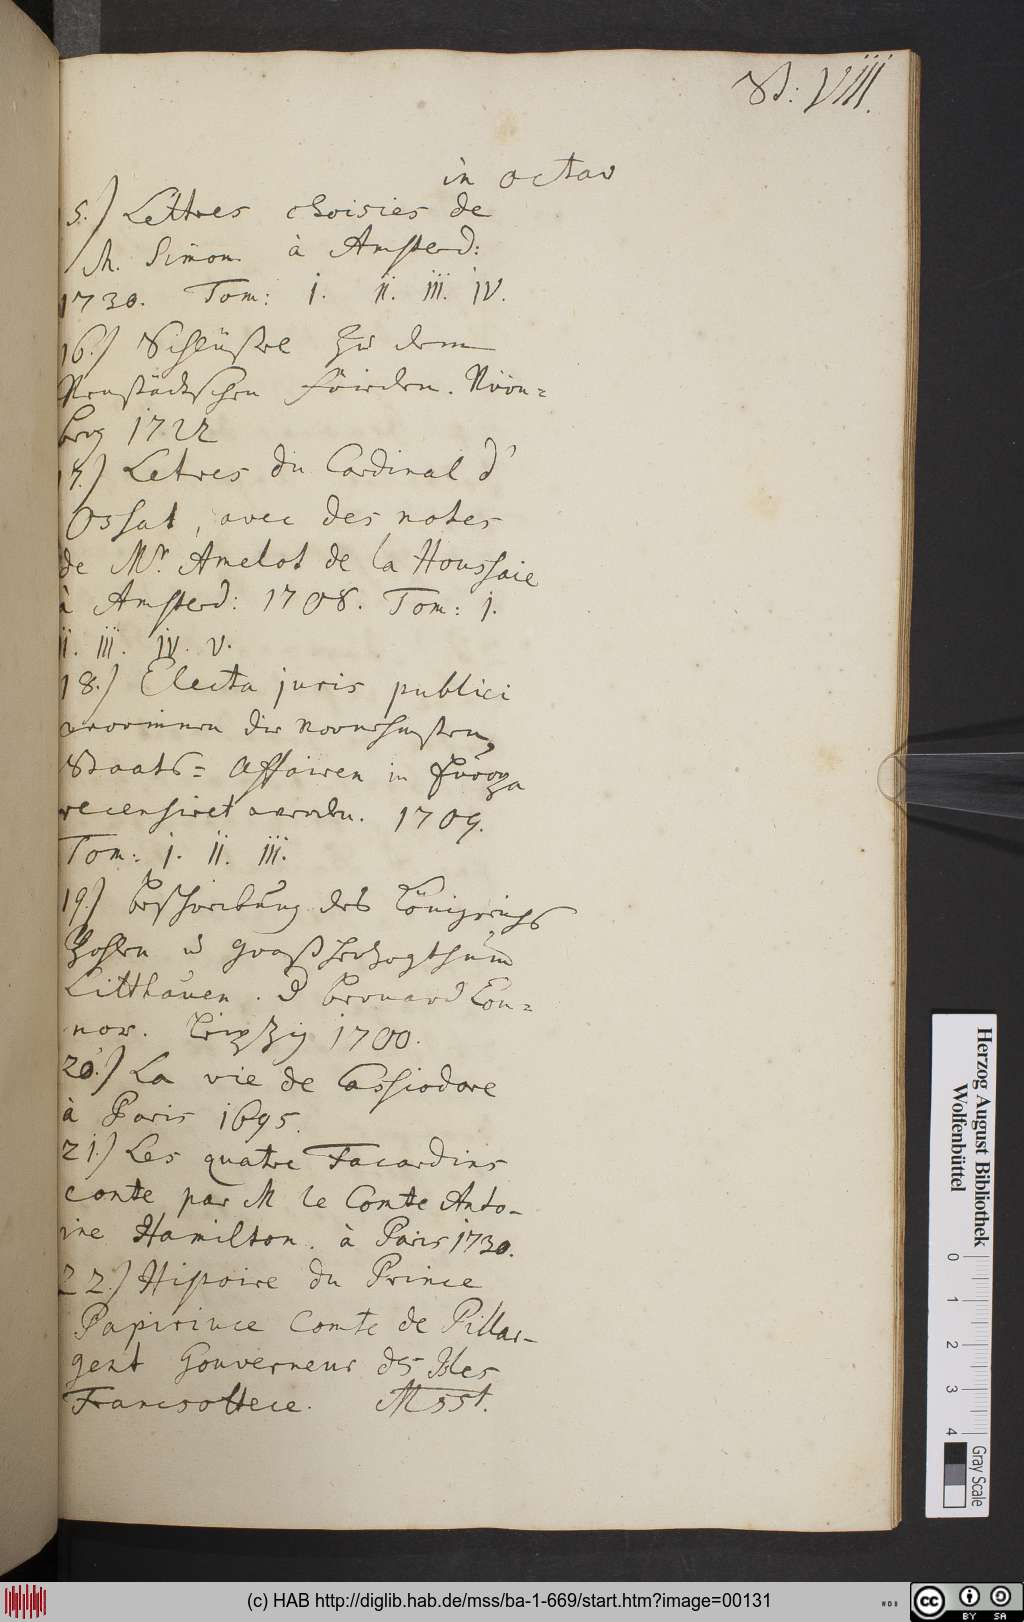 St: VIII.
in octav
5.) Lettres choisies de
M. Simon à Amsterd:
1730. Tom: I. II. III. IV.
16.) Schlüssel zu dem
Neustädtschen Frieden. Nürn=
berg 1722
17.) Letres du Cardinal d'
Ossat, avec des notes
de Mr. Amelot de la Houssaie
à Amsterd: 1708. Tom: I.
II. III. IV. V.
18.) Electa juris publici
worinnen die vornehmsten
Staats= Affairen in Europa
recensiret werden. 1709.
Tom: I. II. III.
19.) Beschreibung des Königreichs
Pohlen u Großherzogthum
Litthauen. d Bernard Con=
nor. Leipzig 1700.
20.) La vie de Cassiodore
à Paris 1695.
21.) Les quatre Facardins
conte par M le Comte Anto-
ine Hamilton. à Paris 1730.
22.) Histoire du Prince
Papirince Comte de Pillar-
gent Gouverneur des Isles
Francsottece. Msst.
Herzog August Bibliothek
Wolfenbüttel
0 1 2 3 4
Gray Scale
(c) HAB http://diglib.hab.de/mss/ba-1-669/start.htm?image=00131
cc BY SA